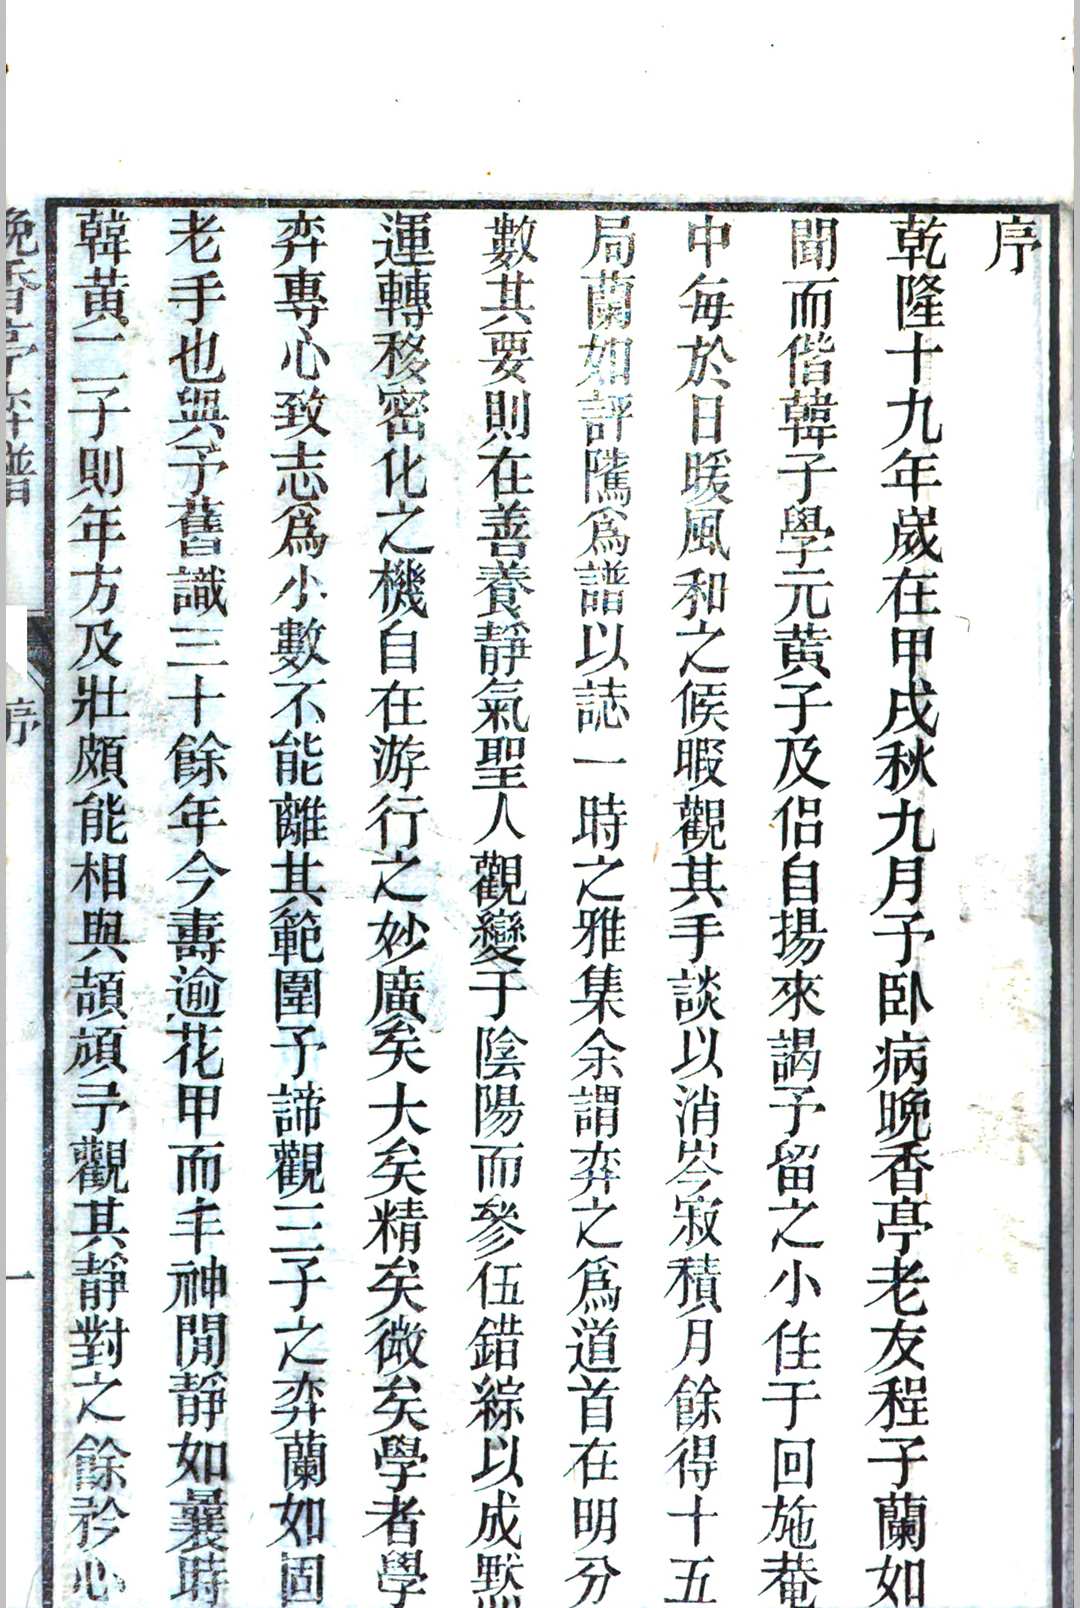 序
乾隆十九年歲在甲戌秋九月予臥病晚香亭老友程子蘭如
聞而偕韓子學元黄子及侶自揚來謁予留之小住于回施菴
中每於日暖風和之候暇觀其手談以消岑寂積月餘得十五
局蘭如評隲爲譜以誌一時之雅集余謂弈之爲道首在明分
數其要則在善養靜氣聖人觀變于陰陽而參伍錯綜以成默
運轉移密化之機自在游行之妙廣矣大矣精矣微矣學者學
弈專心致志爲小數不能離其範圍予諦觀三子之弈蘭如固
老手也與予舊識三十餘年今壽逾花甲而丰神閒靜如曩時
韓黃二子則年方及壯頗能相與頡頏予觀其靜對之餘矜心
晚香亭弈譜
序
一